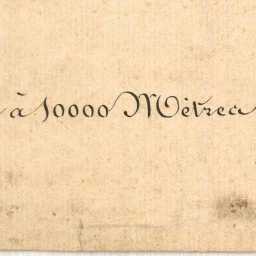 à 10000 Mètres